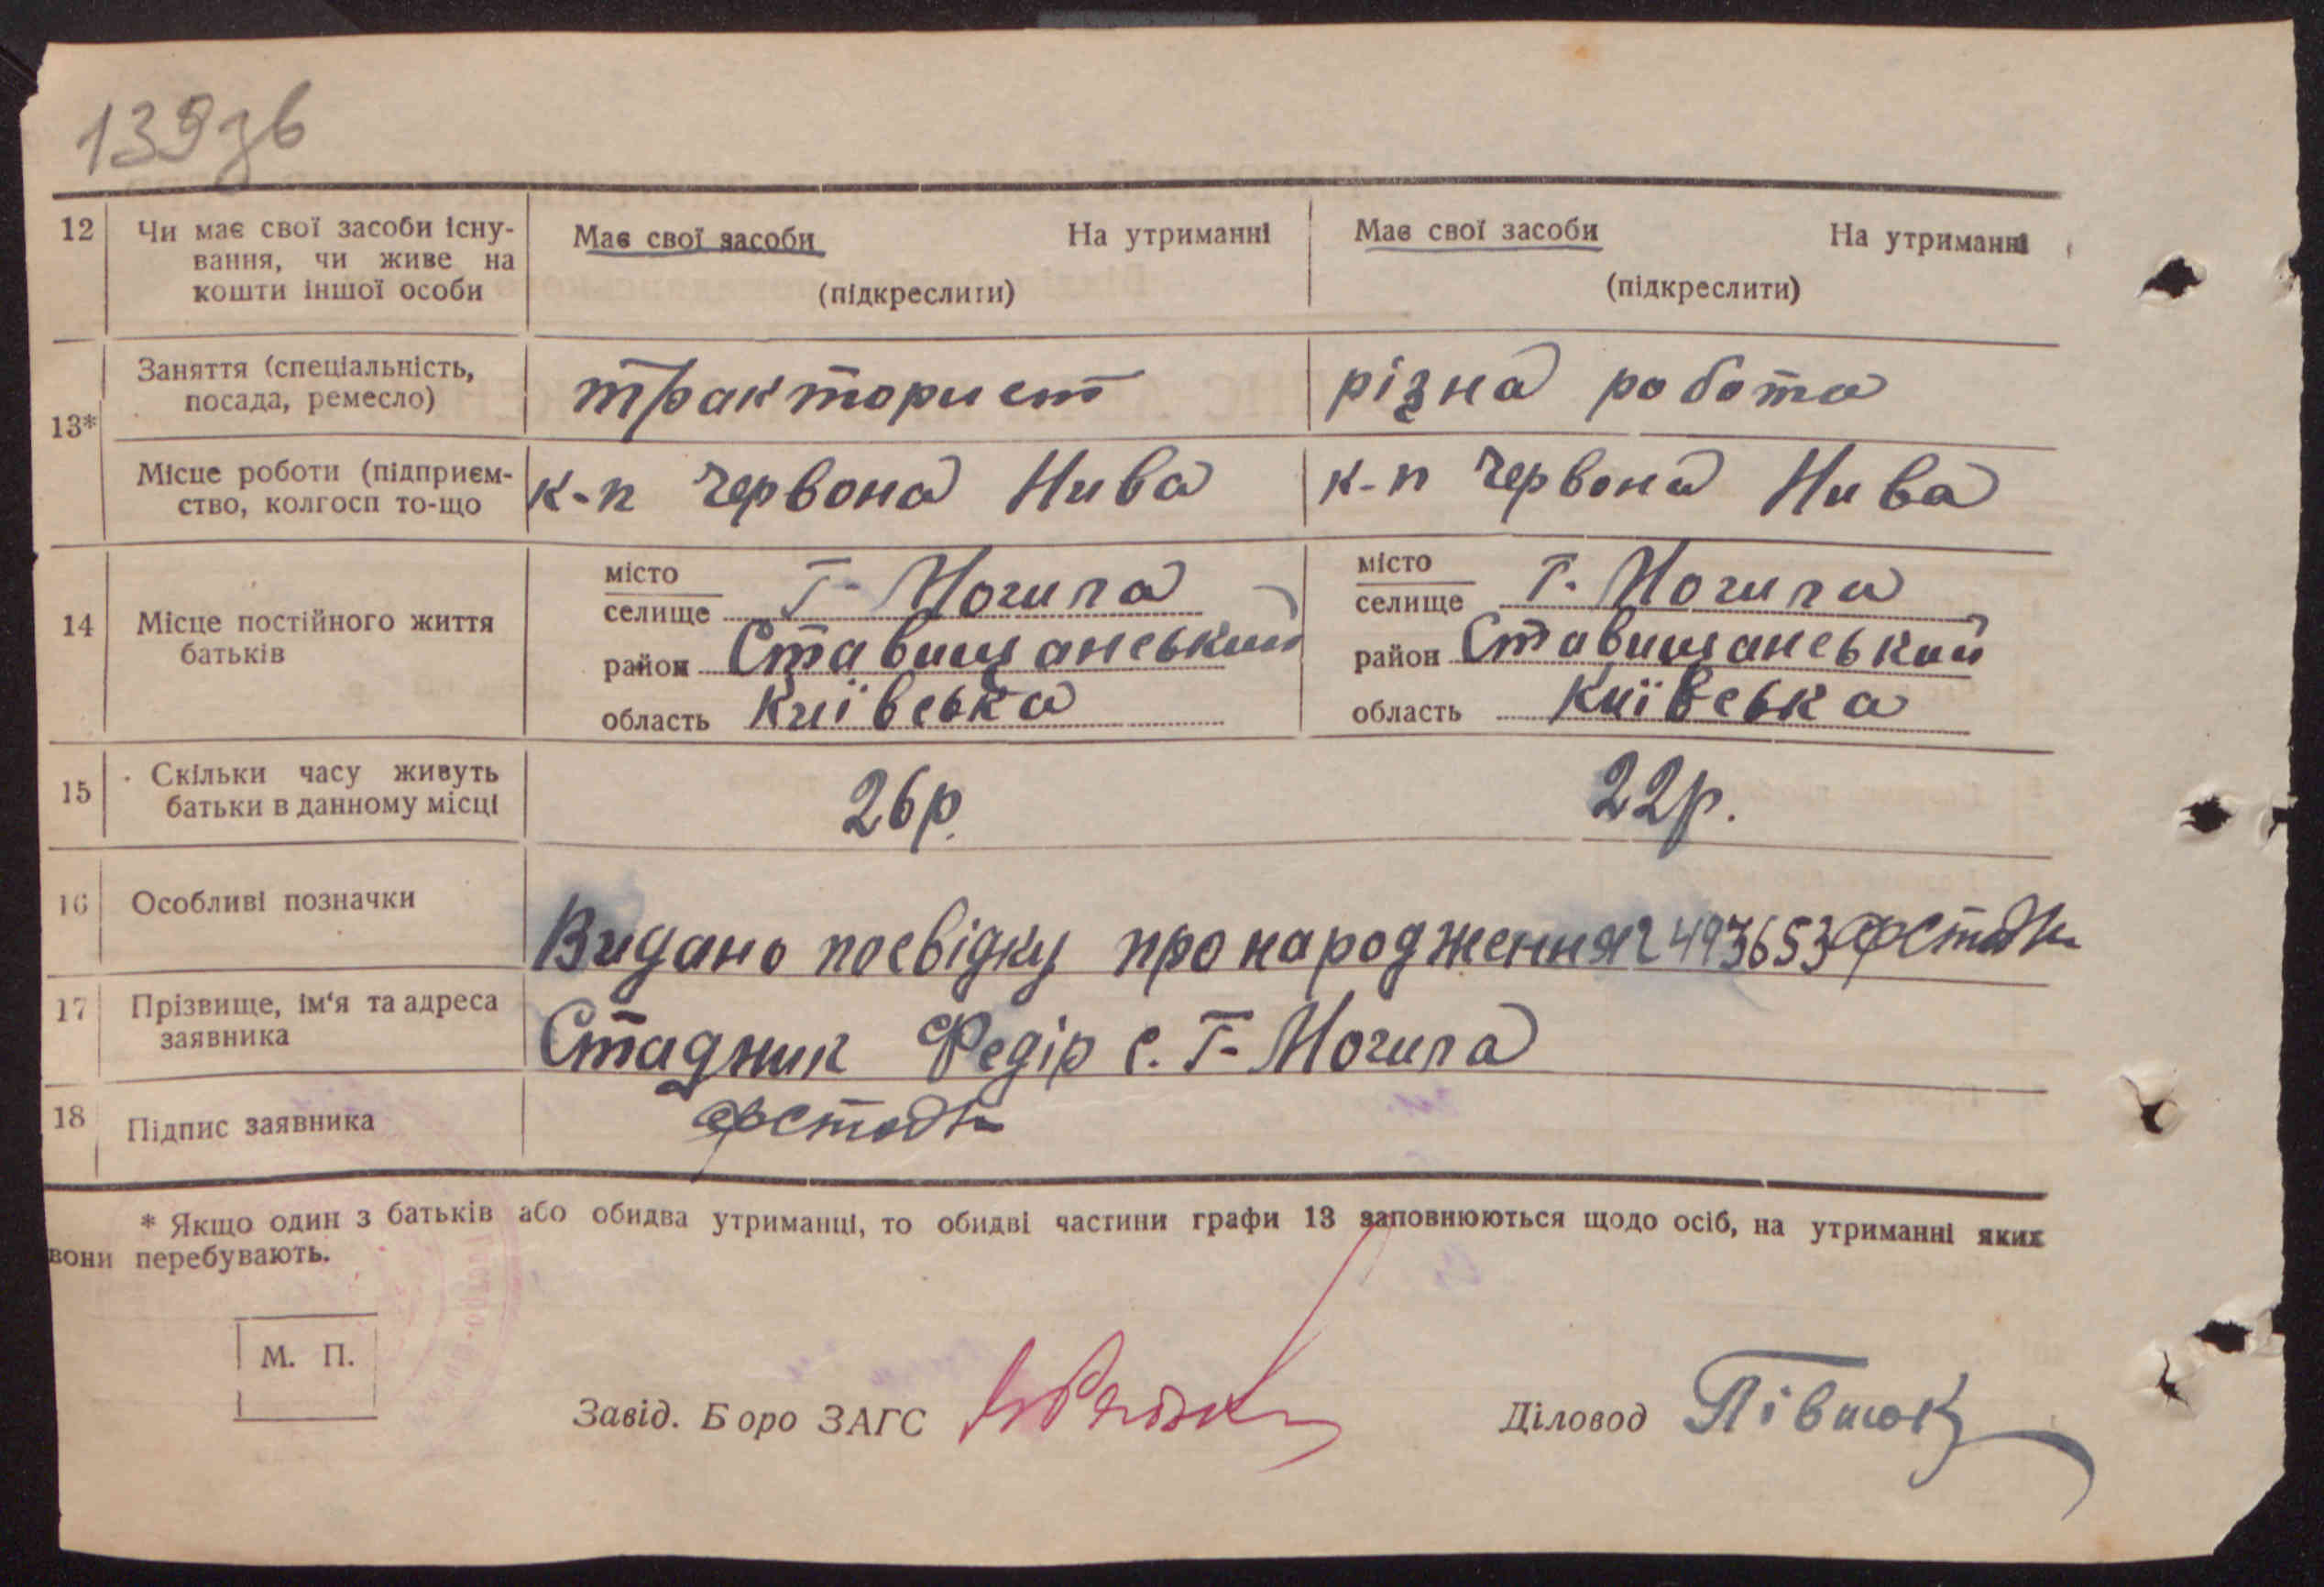 139 зв
12 Чи має свої засоби існу-
вання, чи живе на
кошти іншої особи
Має свої засоби На утриманні
(підкреслити)
Має свої засоби На утриманні
(підкреслити)
13* Заняття (спеціальність,
посада, ремесло)
тракторист
різна робота
Місце роботи (підприєм-
ство, колгосп то-що
к-п Червона Нива
к-п Червона Нива
14 Місце постійного життя
батьків
місто
селище Г-Могила
район Ставищанський
область Київська
місто
селище Г. Могила
район Ставищанський
область Київська
15 Скільки часу живуть
батьки в данному місці
26р.
22р.
16 Особливі позначки
Видано посвідку про народження 493653
17 Прізвище, ім'я та адреса
заявника
Стадник Федір с. Г-Могила
18 Підпис заявника
* Якщо один з батьків або обидва утриманці, то обидві частини графи 13 заповнюються щодо осіб, на утриманні яких
вони перебувають.
М. П.
Завід. Б ро ЗАГС
Діловод